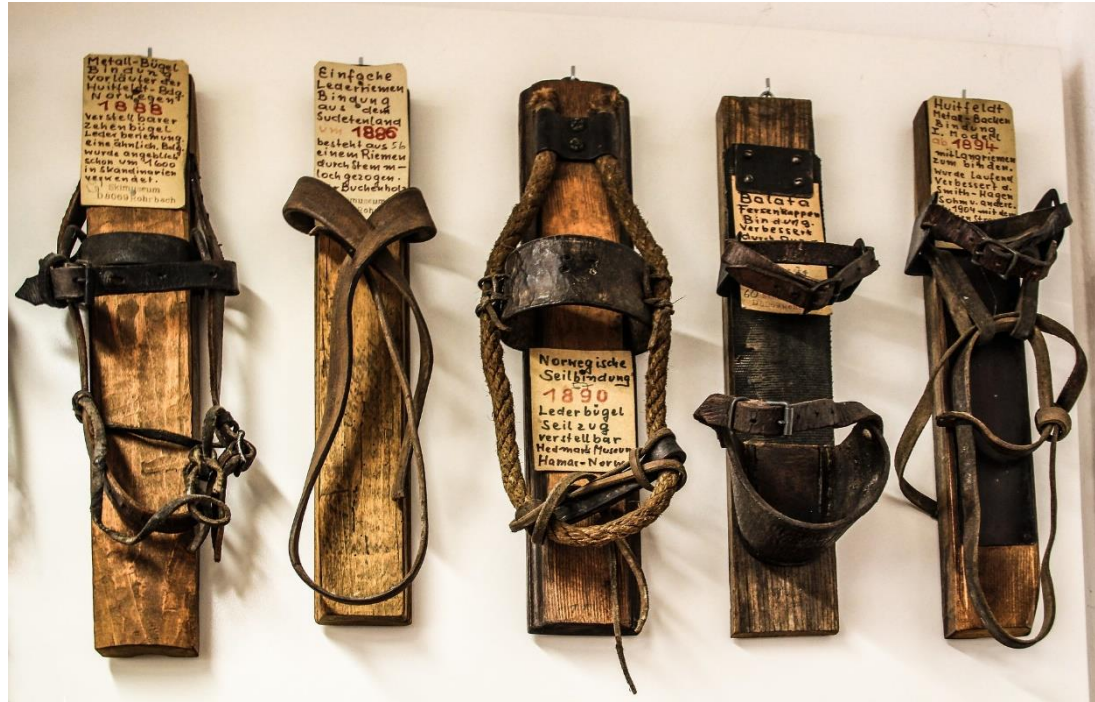 Metall-Bügel
Bindung
Vorläufer der
Huitfeldt-Bdg.
Norwegen
1888
verstellbarer
Zehenbügel
Lederberiemung.
eine ähnlich. Bdg.
wurde angeblich
schon um 1600
in Skandinavien
verwendet.
Skimuseum
Rohrbach
Einfache
Lederriemen
Bindung
aus dem
Sudetenland
um 1886
besteht aus
einem Riemen
durch Stemm-
loch gezogen.
Buchenholz
Norwegische
Seilbindung
1890
Lederbügel
Seilzug
verstellbar
Hedmark Museum
Hamar-Norw
Balata
Fersenkappen
Bindung.
Verbessert
durch
Huitfeldt
Metall-Backen
Bindung
I. Modell
ab 1894
mit Langriemen
zum binden.
Wurde laufend
Verbessert d.
Smith-Hagen
Sohm u. andere.
1904 mit dem